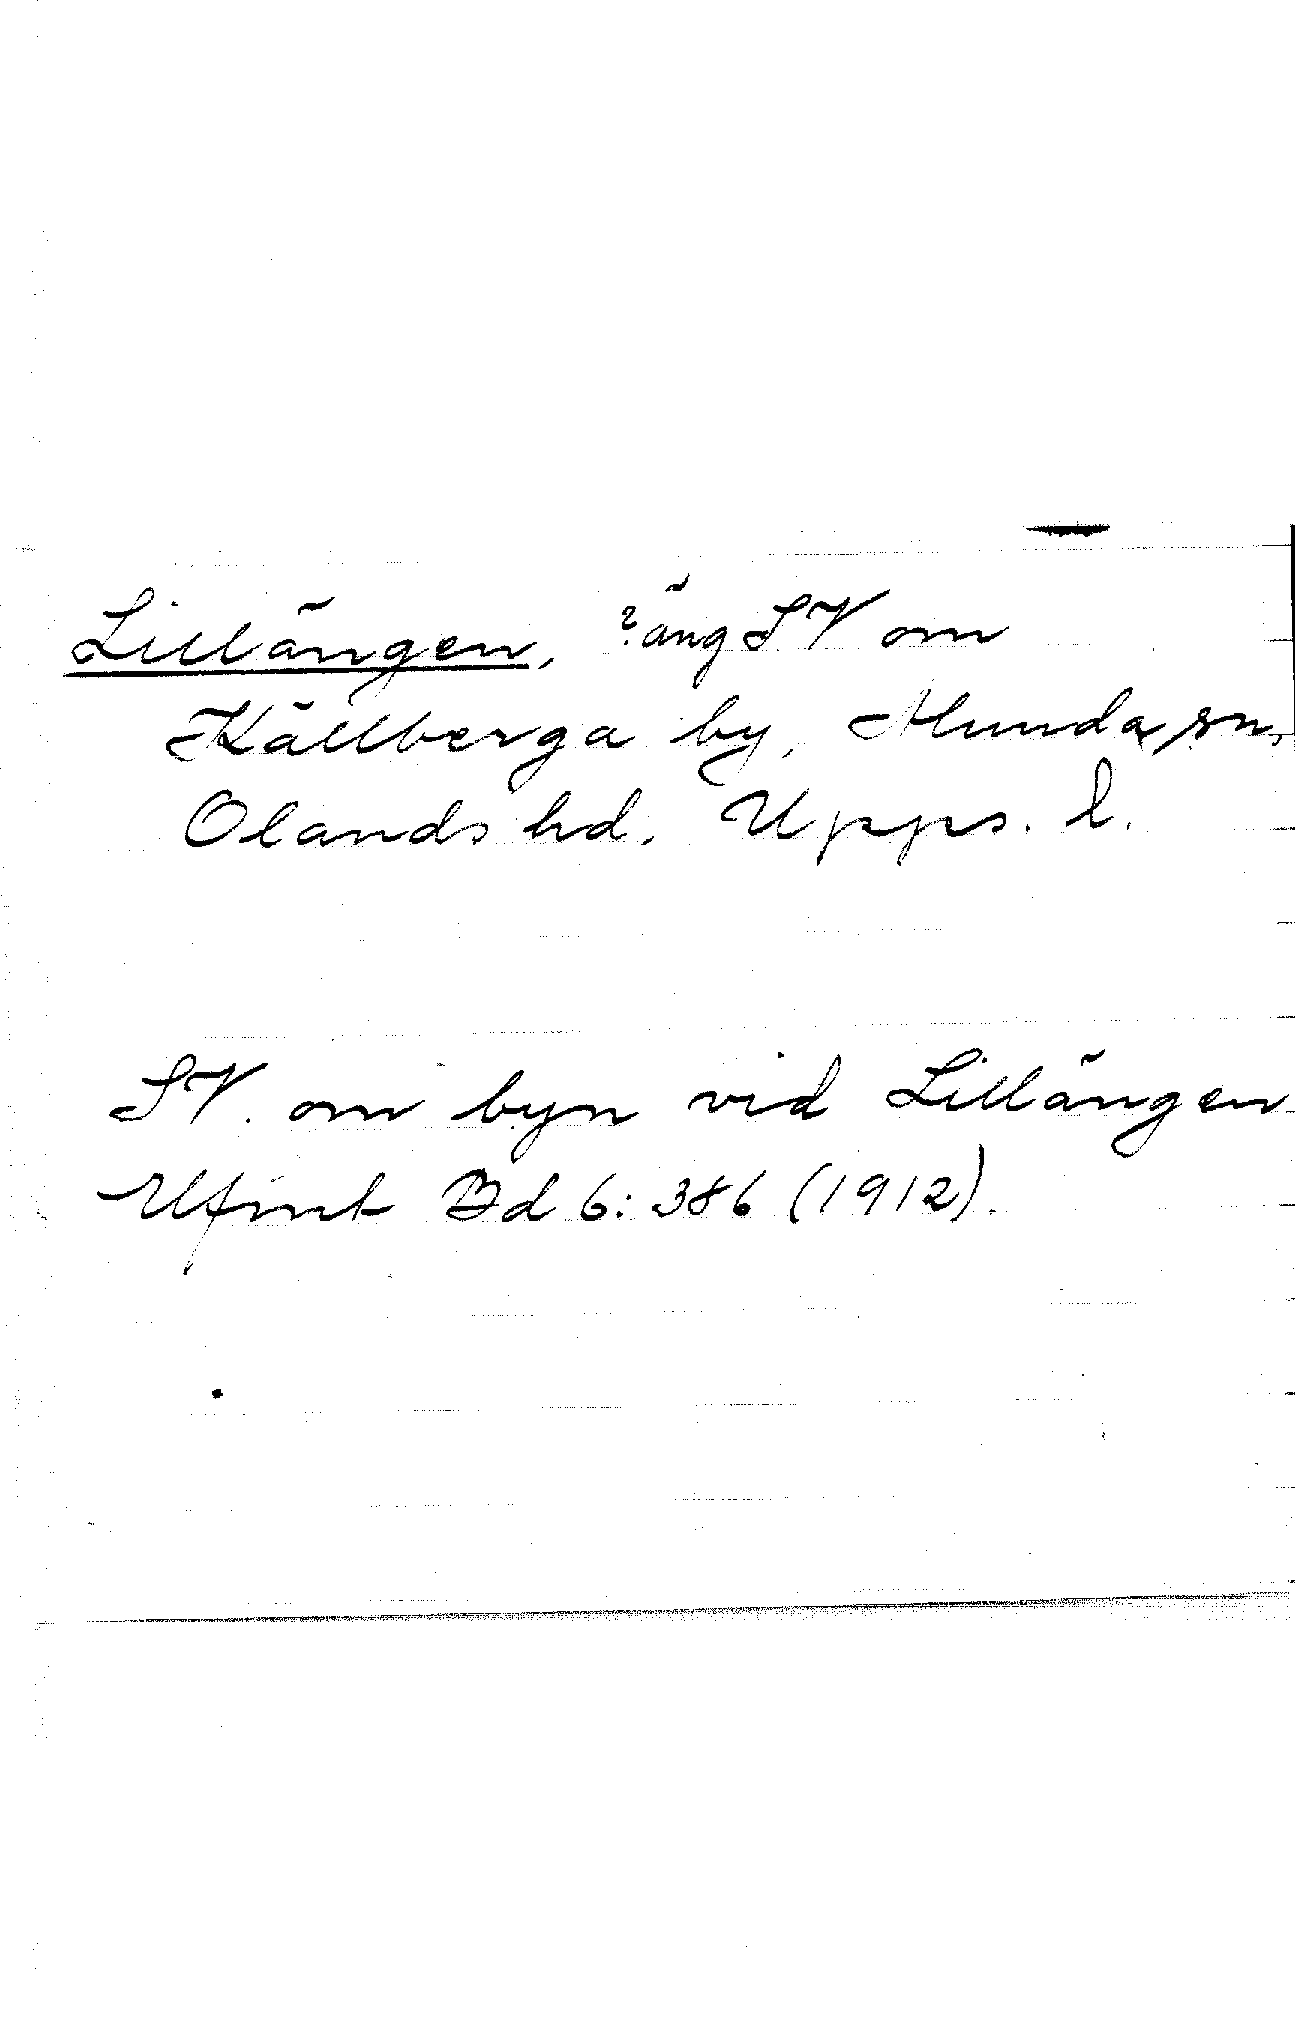 Lillängen, ?äng SV om
Källberga by, Alunda sn,
Olands hd. Upps. l.
SV. om byn vid Lillängen
Ufmt Bd 6: 386 (1912).